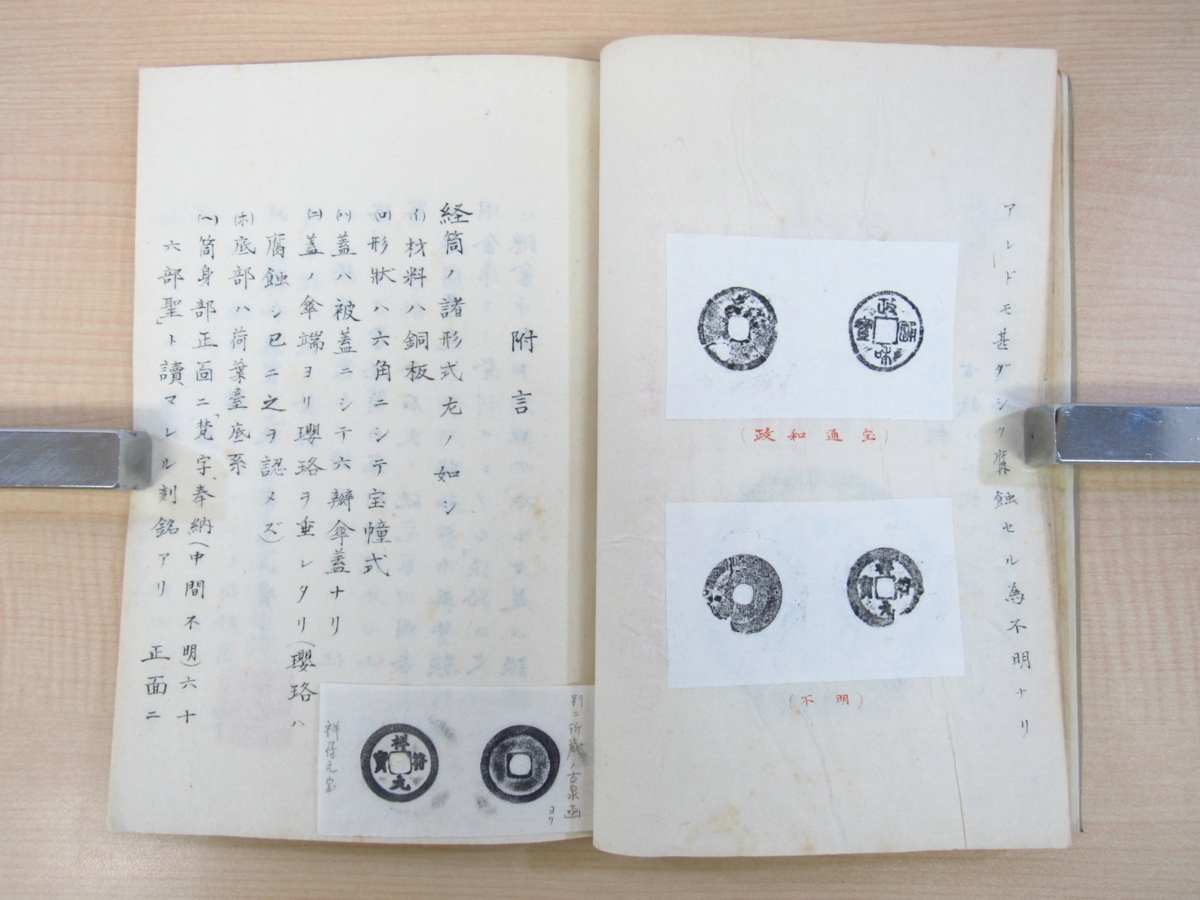 アレドモ甚ダシク腐蝕セル為不明ナリ
政和通寶
(政和通宝)
祥符元寶
(不明)
附言
経筒ノ諸形式左ノ如シ
(イ)材料ハ銅板
(ロ)形状ハ六角ニシテ宝幢式
(ハ)蓋ハ被蓋ニシテ六瓣傘蓋ナリ
(ニ)蓋ノ傘端ヨリ瓔珞ヲ垂レタリ(瓔珞ハ
腐蝕シ已ニ之ヲ認メズ)
(ホ)底部ハ荷葉臺底系
(ヘ)筒身部正面ニ梵字、奉納(中間不明)六十
六部聖」ト讀マレル刻銘アリ 正面ニ
別ニ所蔵ノ古泉函
ヨリ
祥符元寶
祥符元宝